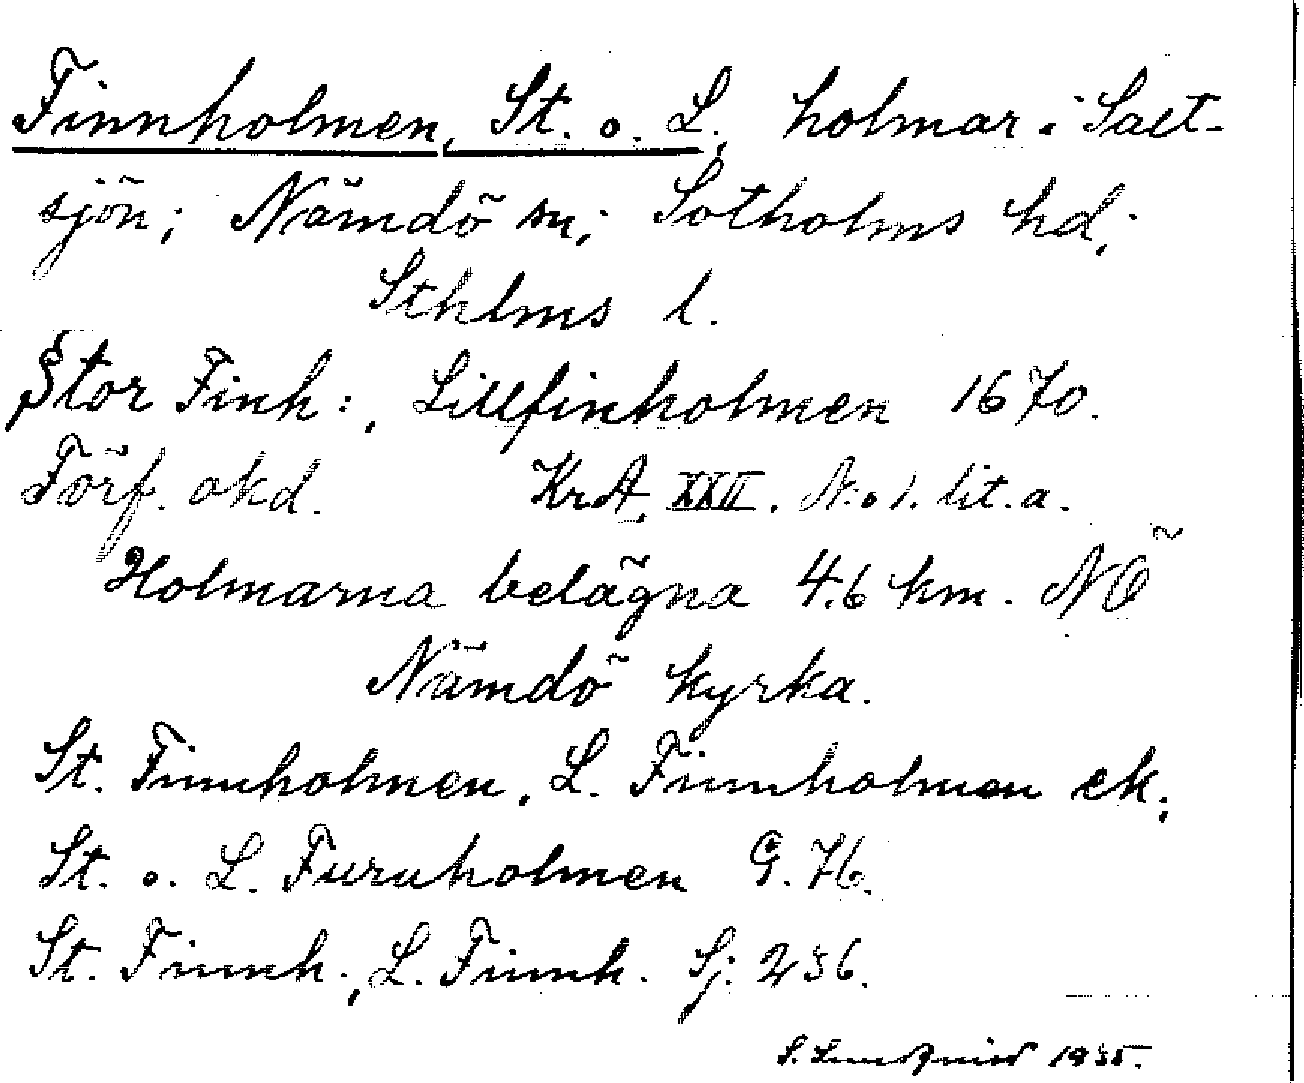 Finnholmen, St. o. L., holmar i Salt-
sjön; Nämdö sn; Sotholms hd;
Sthlms l.
Stor Finh:, Lillfinholmen 1670.
Förf. okd. KrA, XXII. N:o 1. lit. a.
Holmarna belägna 4.6 km. NÖ
Nämdö kyrka.
St. Finnholmen, L. Finnholmen ek;
St. o. L. Furuholmen G. 76.
St. Finnh., L. Finnh. Sj: 236.
1935.